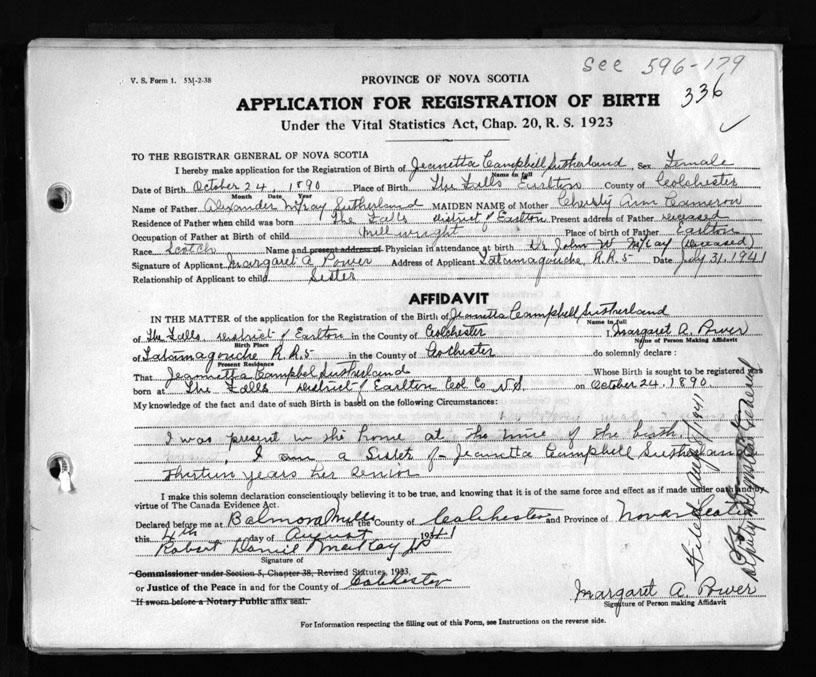 See 596-179
V. S. Form 1. 5M-2-38
PROVINCE OF NOVA SCOTIA
336
APPLICATION FOR REGISTRATION OF BIRTH
Under the Vital Statistics Act, Chap. 20, R. S. 1923
TO THE REGISTRAR GENERAL OF NOVA SCOTIA
I hereby make application for the Registration of Birth of Jeanetta Campbell Sutherland Sex Female
Name in full
Date of Birth October 24, 1890 Place of Birth The Falls Earltown County of Colchester
Month Date Year
Name of Father Alexander McKay Sutherland MAIDEN NAME of Mother Christy Ann Cameron
Residence of Father when child was born The Falls district of Earlton Present address of Father deceased
Occupation of Father at Birth of child Mill wright Place of birth of Father Earlton
Race Scotch Name and present address of Physician in attendance at birth Dr John W McKay (deceased)
Signature of Applicant Margaret A Power Address of Applicant Tatamagouche, R.R.5 Date July 31, 1941
Relationship of Applicant to child Sister
AFFIDAVIT
IN THE MATTER of the application for the Registration of the Birth of Jeanetta Campbell Sutherland
Name in full
of The Falls, District of Earlton in the County of Colchester I, Margaret A. Power
Birth Place Name of Person Making Affidavit
of Tatamagouche R.R.5 in the County of Colchester do solemnly declare :
Present Residence
That Jeannetta Campbel Sutherland Whose Birth is sought to be registered was
born at The Falls District of Earlton Col. Co N.S. on October 24, 1890
My knowledge of the fact and date of such Birth is based on the following Circumstances:
I was present in the home at the time of the birth.
I am a Sister of Jeanetta Campbell Sutherland
Thirteen years her senior
I make this solemn declaration conscientiously believing it to be true, and knowing that it is of the same force and effect as if made under oath and by
virtue of The Canada Evidence Act.
Declared before me at Balmoral Mills in the County of Colchester and Province of Nova Scotia
this 4th day of August 1941
Robert Daniel MacKay JP
Signature of
Commissioner under Section 5, Chapter 38, Revised Statutes, 1923,
or Justice of the Peace in and for the County of Colchester
If sworn before a Notary Public affix seal.
Margaret A. Power
Signature of Person making Affidavit
For Information respecting the filling out of this Form, see Instructions on the reverse side.
Filed Aug 1941
Deputy Registrar General